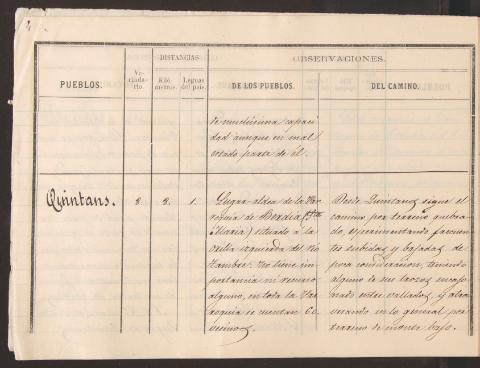 DISTANCIAS
OBSERVACIONES.
PUEBLOS.
Ve-
cinda-
rio.
Kiló-
metros.
Leguas
del país.
DE LOS PUEBLOS.
DEL CAMINO.
de muchísima capaci
dad aunque en mal
estado parte de él.
Quintans.
8.
1.
Lugar aldea de la Par
roquia de Bordia (Sta
Maria) situado á la
orilla izquierda del rio
Tambre. No tiene im
portancia ni recurso
alguno, en toda la Par
roquia se cuentan
vecinos.
Desde Quintans sigue el
camino por terreno quebra
do, esperimentando frecuen
tes subidas y bajadas de
poca consideracion, teniendo
alguno de sus trozos encajo
nado entre vallados, y atra
vesando en lo general por
terreno de monte bajo.